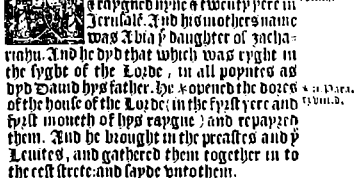 & raygned nyne & twenty yere in
Jerusalē. And his mothers name
was Abia yͤ daughter of zacha-
riahu. And he dyd that which was ryght in
the syght of the Lorde, in all poyntes as
dyd Dauid hys father. He ☓ opened the dores
of the house of the Lorde (in the fyrst yere and
fyrst moneth of hys raygne) and repayred
them. And he brought in the preastes and yͤ
Leuites, and gathered them together in to
the eest strete: and sayde vnto them.
☓ ii. Para.
xxviii.d.